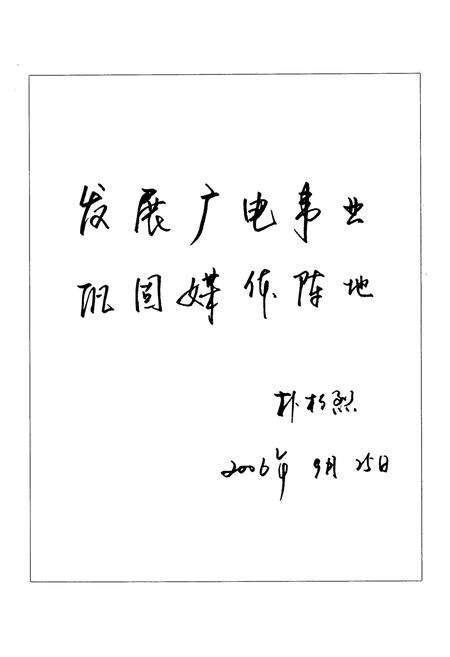 发展广电事业
巩固媒体阵地
朴松烈
2006年9月25日